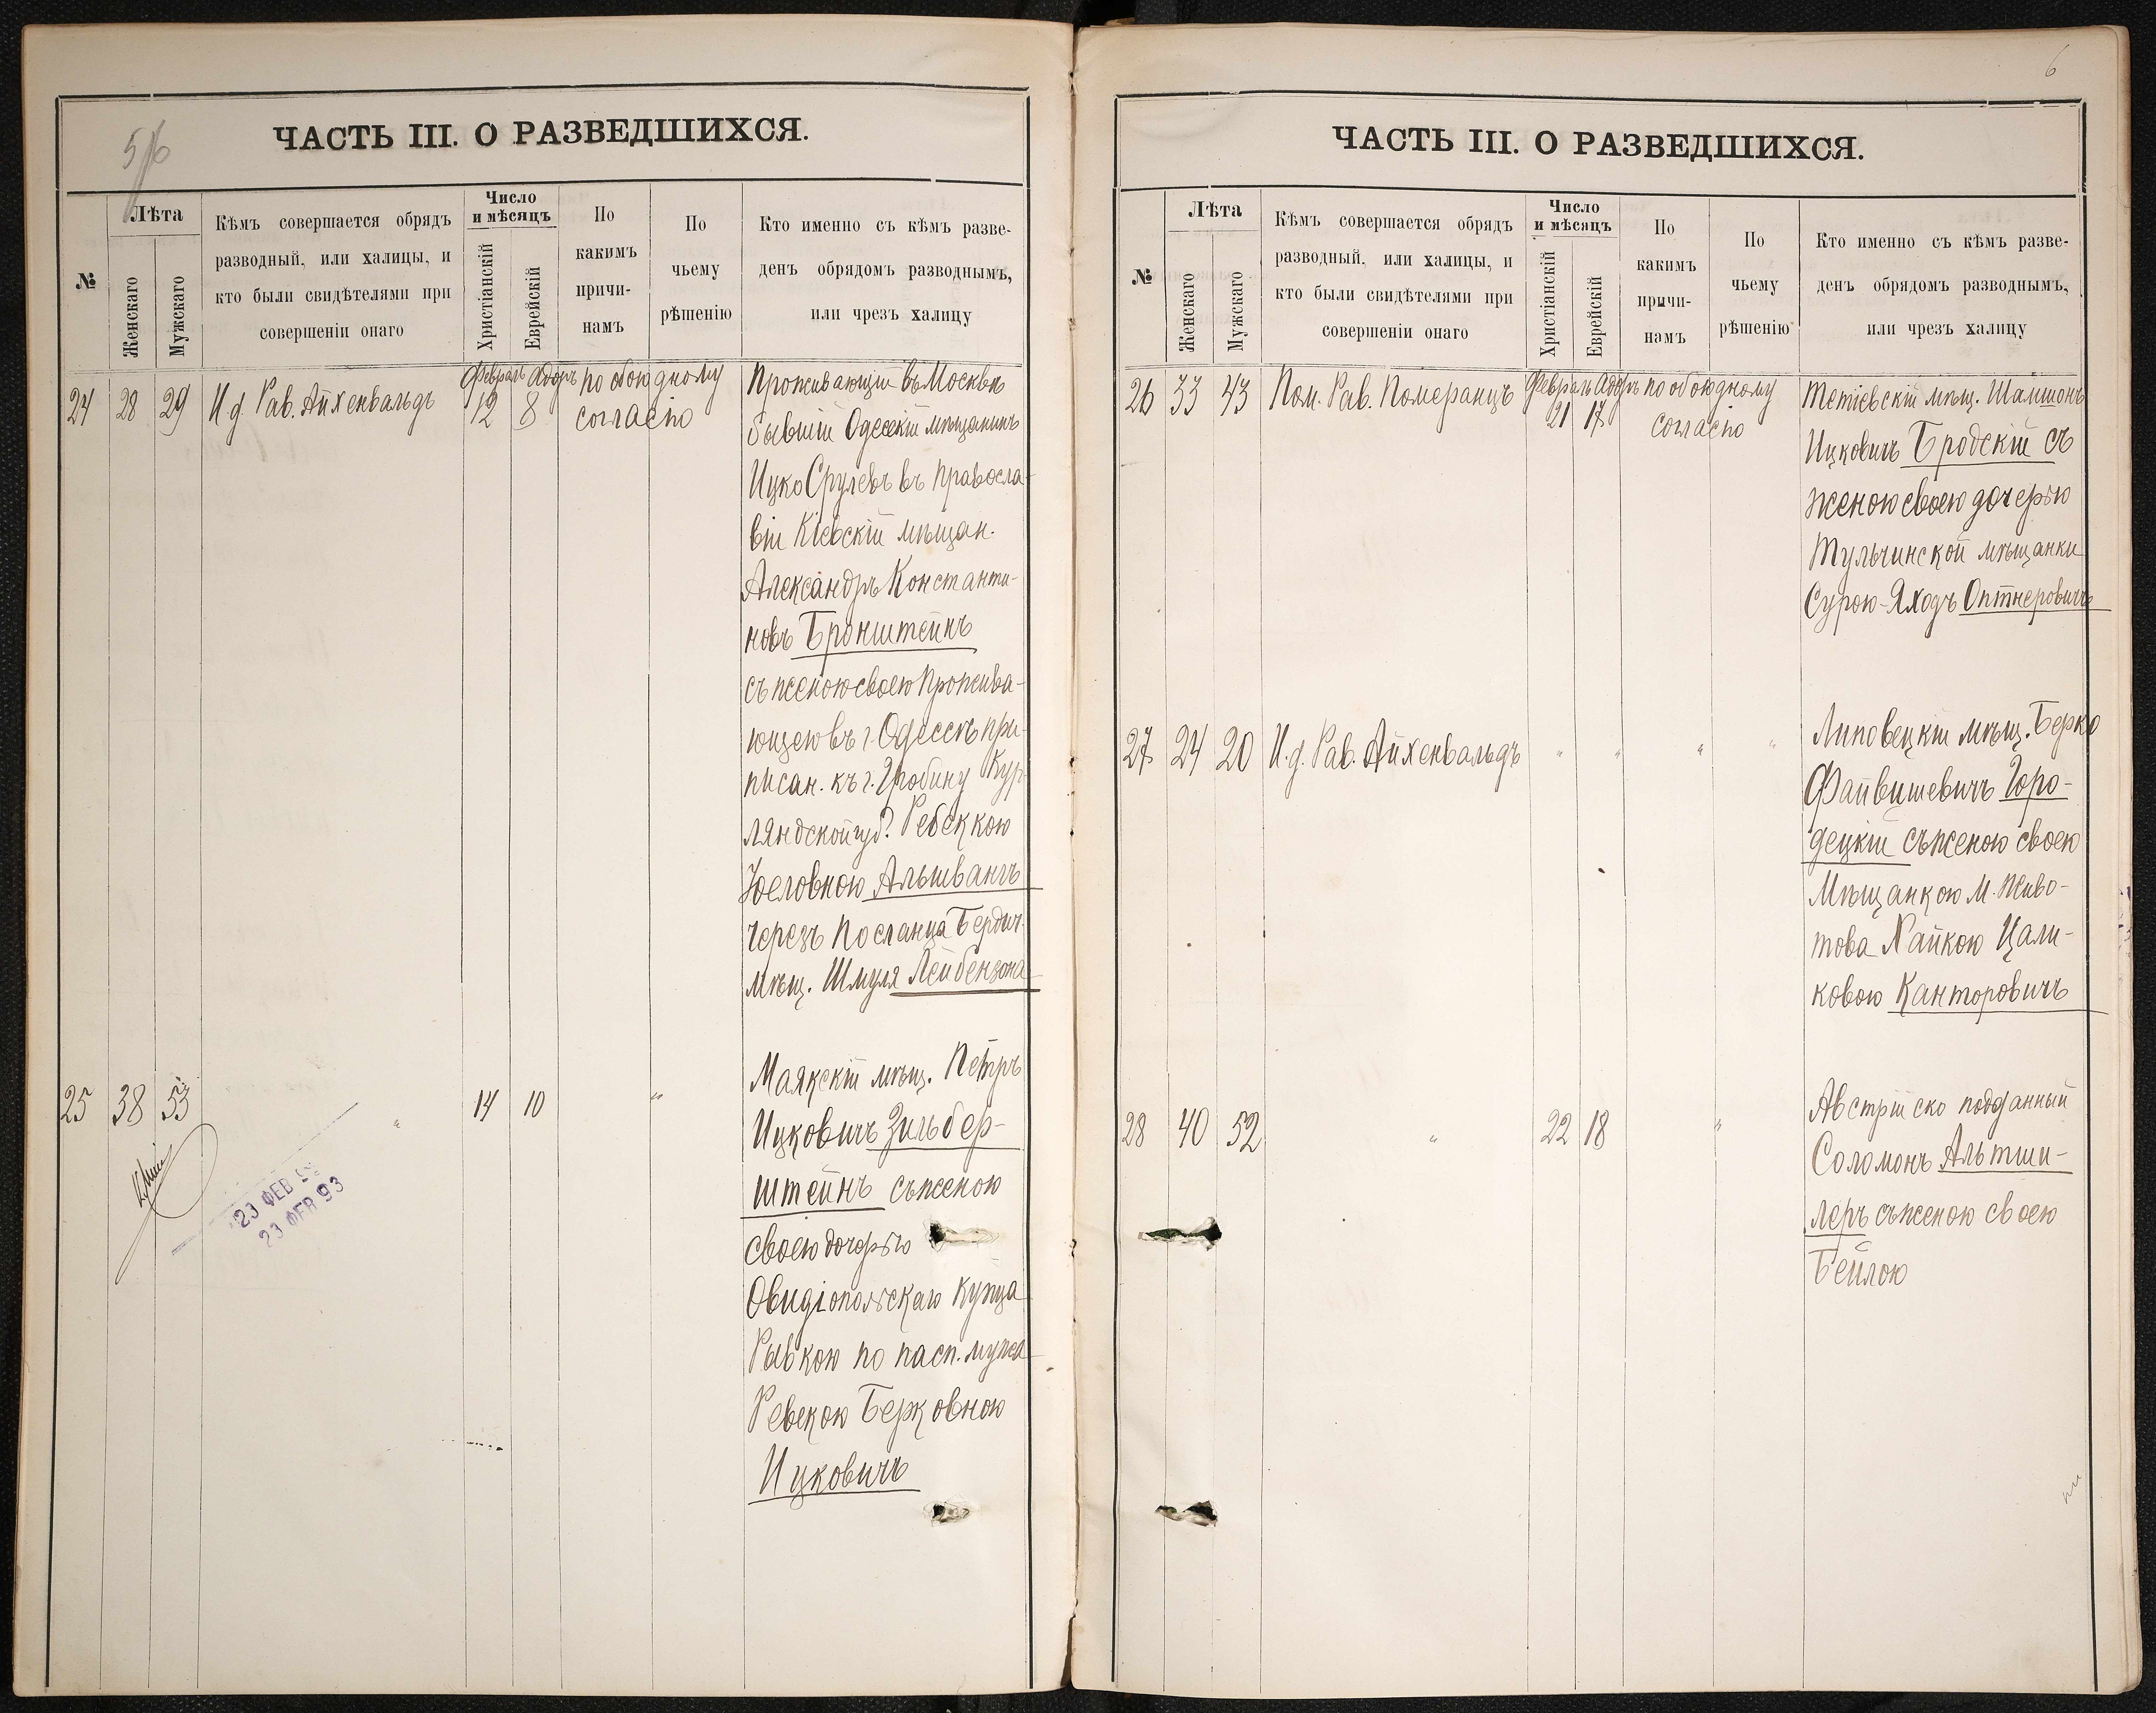 5/6
ЧАСТЬ III. О РАЗВЕДШИХСЯ.
№
Лѣта
Женскаго
Мужскаго
Кѣмъ совершается обрядъ
разводный, или халицы, и
кто были свидѣтелями при
совершеніи онаго
Число
и мѣсяцъ
Христіанскій
Еврейскій
По
какимъ
причи-
намъ
По
чьему
рѣшенію
Кто именно съ кѣмъ разве-
денъ обрядомъ разводнымъ,
или чрезъ халицу
24 28 29 И.д. Рав. Айхенвальдъ
Февраль Адоръ
12 8
по обоюдному
согласію
Проживающій въ Москвѣ
бывшій Одесскій мѣщанинъ
Ицко Срулевъ въ правосла-
віи Кіевскій мѣщан.
Александръ Константи-
новъ Бронштейнъ
съ женою своею прожива-
ющею въ г. Одессѣ при-
писан. къ г. Гробину Кур-
ляндской губ. Ребеккою
Іоеловною Альшвангъ
черезъ посланца Бердич.
мѣщ. Шмуля Лейбензона
25 38 53 " 14 10 "
Маякскій мѣщ. Петръ
Ицковичъ Зильбер-
штейнъ съ женою
своею дочерью
Овидіопольскаго купца
Рывкою по пасп. мужа
Ревекою Берковною
Ицковичъ
23 ФЕВ
23 ФЕВ 93
6
ЧАСТЬ III. О РАЗВЕДШИХСЯ.
№
Лѣта
Женскаго
Мужскаго
Кѣмъ совершается обрядъ
разводный, или халицы, и
кто были свидѣтелями при
совершеніи онаго
Число
и мѣсяцъ
Христіанскій
Еврейскій
По
какимъ
причи-
намъ
По
чьему
рѣшенію
Кто именно съ кѣмъ разве-
денъ обрядомъ разводнымъ,
или чрезъ халицу
26 33 43 Пом. Рав. Померанцъ
Февраль Адоръ
21 17
по обоюдному
согласію
Тетіевскій мѣщ. Шамшонъ
Ицковичъ Бродскій съ
женою своею дочерью
Тульчинской мѣщанки
Сурою-Яходъ Оптнеровичъ
27 24 20 И.д. Рав. Айхенвальдъ " " " "
Липовецкій мѣщ. Берко
Файвишевичъ Горо-
децкій съ женою своею
Мѣщанкою М. Живо-
това Хайкою Цали-
ковою Канторовичъ
28 40 52 " 22 18 "
Австрійско подданный
Соломонъ Альтши-
леръ съ женою своею
Бейлою